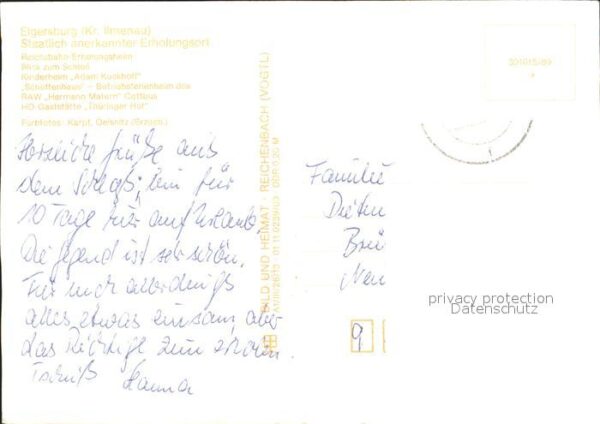 Elgersburg (Kr. Ilmenau)
Staatlich anerkannter Erholungsort
Reichsbahn-Erholungsheim
Blick zum Schloß
Kinderheim „Adam Kuckhoff"
„Schöffenhaus" – Betriebsferienheim des
RAW „Hermann Matern" Cottbus
HO-Gaststätte „Thüringer Hof"
Farbfotos: Karpf, Geisnitz (Erzgeb.)
Herzliche Grüße aus
dem Schloß, bin für
10 Tage hier auf Urlaub.
Die Gegend ist sehr schön.
Für mich allerdings
alles etwas einsam, aber
das Richtige zum
Tschüß Hanna
BILD UND HEIMAT · REICHENBACH (VOGTL)
DDR 0,20 M
Familie
privacy protection
Datenschutz
9